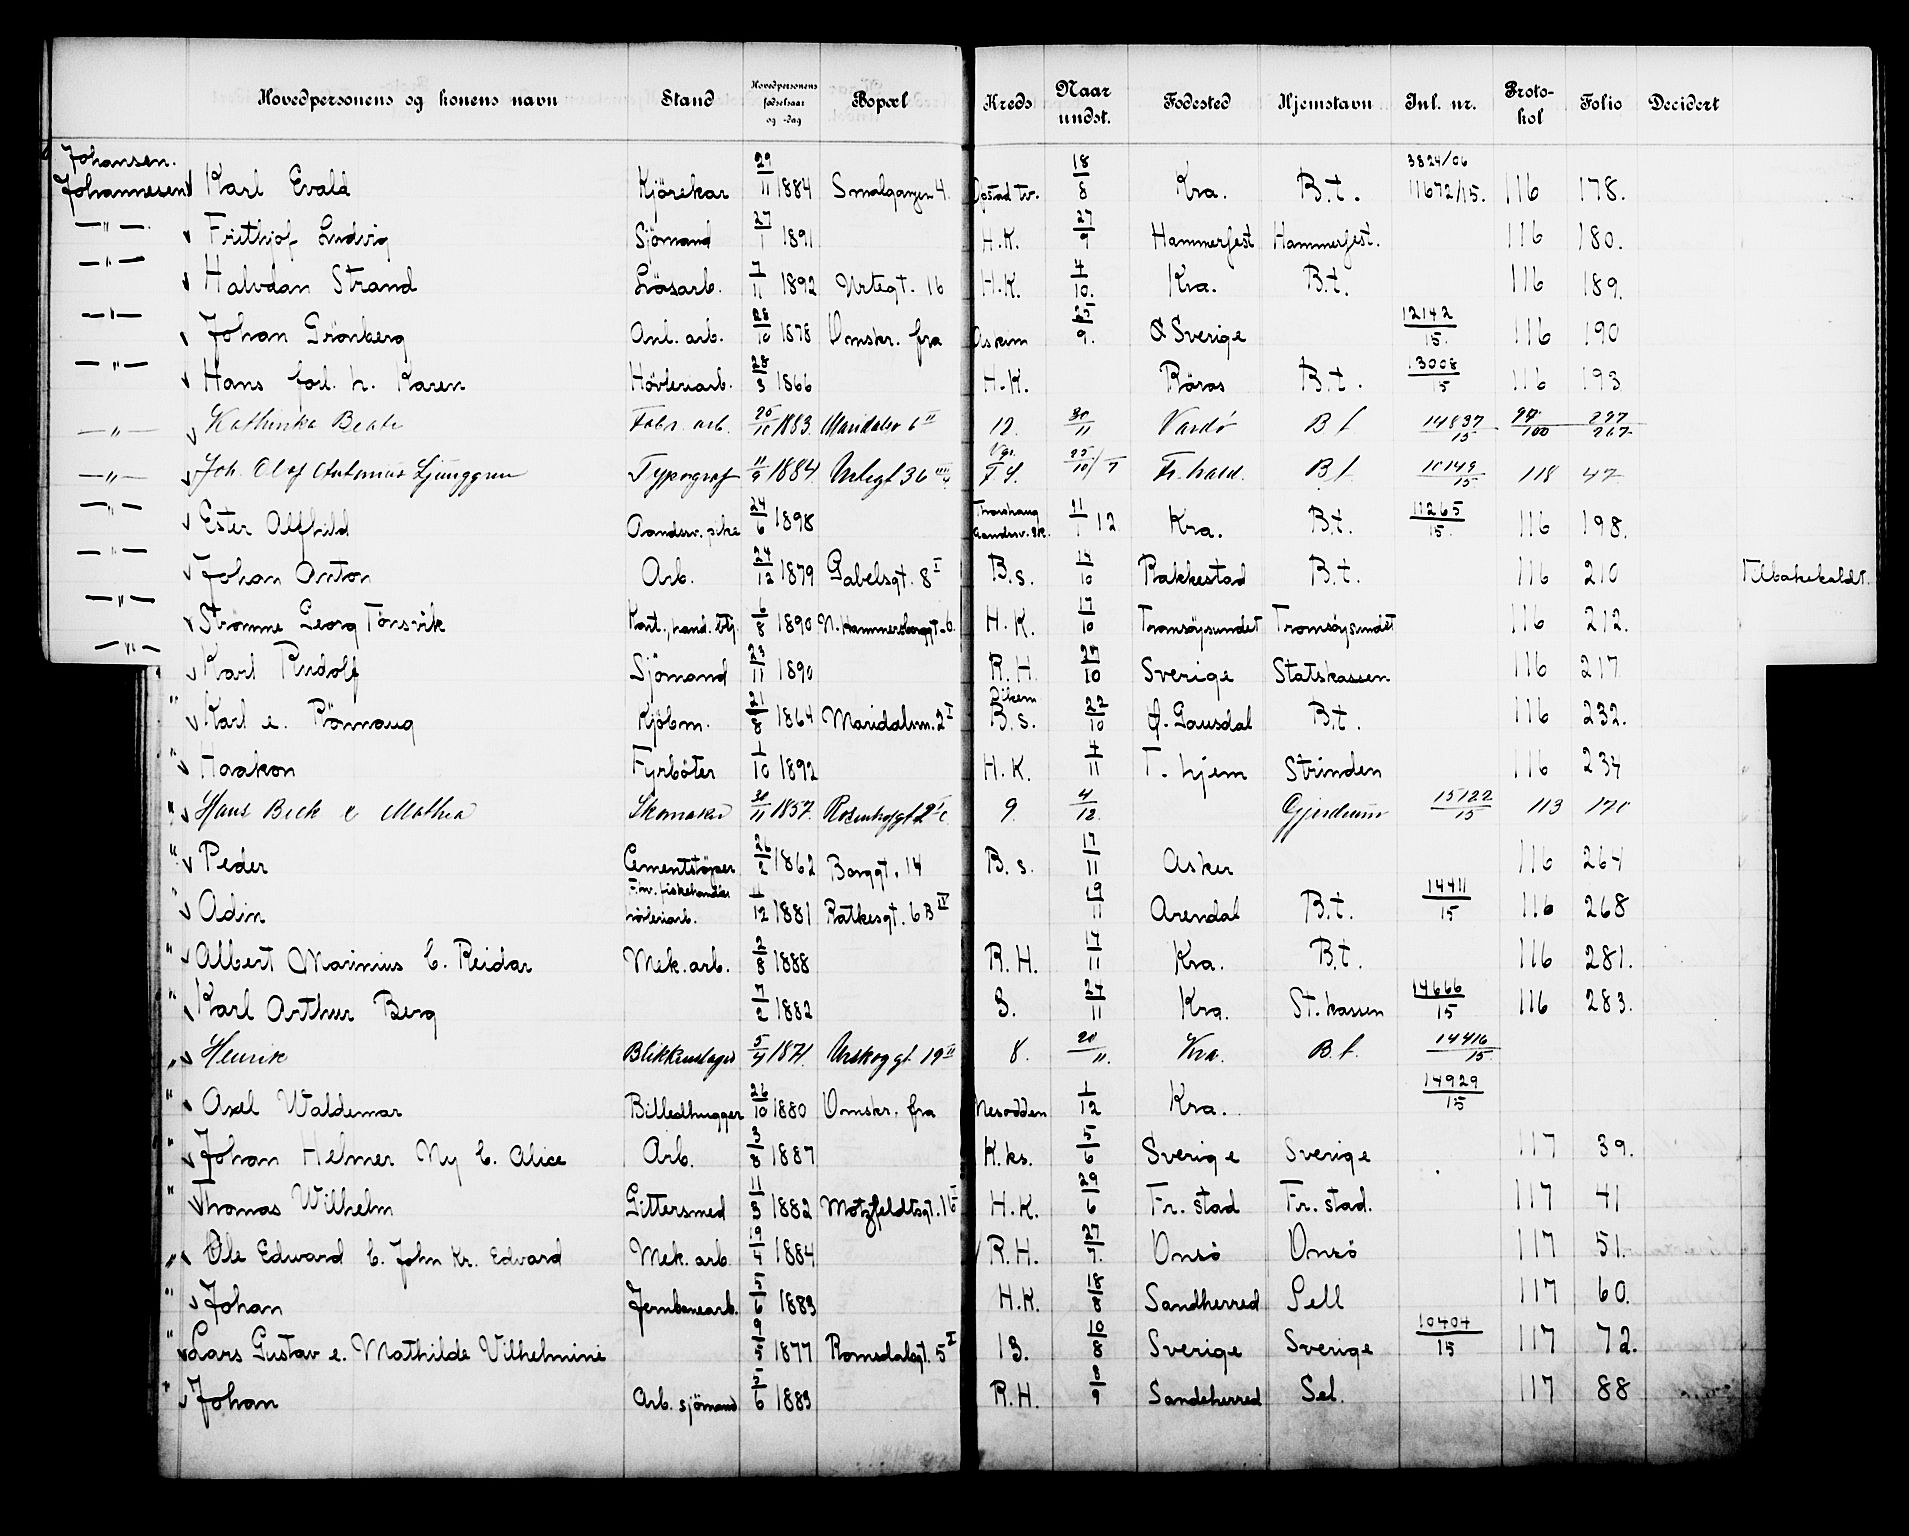 Hovedpersonens og konens navn Stand Hovedpersonens fødselsaar og -dag Bopæl Kreds Naar undst. Fødested Hjemstavn Inl. nr. Protokol Folio Decidert
Johansen.
Johannesen Karl Evald Kjørekar 29/11 1884 Smalgangen 4. Opstad tv. 18/8 Kra. B.t. 3824/06 11672/15. 116 178.
—"— Frithjof Ludvig Sjömand 27/1 1891 H.K. 27/9 Hammerfest Hammerfest. 116 180.
—"— Halvdan Strand Lösarb. 7/11 1892 Urtegt. 16 H.K. 4/10. Kra. B.t. 116 189.
—"— Johan Grönberg Anl. arb. 28/10 1878 Omskr. fra Askim 25/9. Sverige 12142/15. 116 190
—"— Hans fol. h. Karen Høvleriarb. 28/3 1866 H.K. Röros B.t. 13008/15 116 193
—"— Kathinka Beate Fabr. arb. 20/11 1883. Maridalsv 6 II 12. 30/11 Vardö B t 14837/15 99/100 297/267
—"— Joh. Olaf Antonius Ljunggren Typograf 11/9 1884 Urtegt 36 F.S. 25/10 Fr.hald. B t 10149/15 118 47
—"— Ester Alfhild Aandsv. pike 24/6 1898 Thorshaug Aandsv. sk. 21/1 12 Kra. B.t. 11265/15. 116 198.
—"— Johan Anton Arb. 24/12 1879 Gabelsgt. 8 I B.s. 14/10 Rakkestad B.t. 116 210 Tilbakekaldt.
—"— Strömme Georg Torsvik Kont., hand. btj. 6/8 1890 N. Hammersborggt. 6. H.K. 17/10 Tromsöysundet Tromsöysundet 116 212.
—"— Karl Rudolf Sjömand 23/11 1890 R.H. 27/10 Sverige Statskassen 116 217
" Karl e. Rönnaug Kjöbm. 21/8 1864 Maridalsvn. 2 I Dikem. B.s. 22/10 Ö. Gausdal B.t. 116 232.
" Haakon Fyrböter 1/10 1892 H.K. 4/11 T. hjem Strinden 116 234
" Hans Beck e Mathea Skomaker 30/11 1857. Rosenhofgt 2 I c. 9. 4/12. Gjerdrum 15122/15 113 170
" Peder Cementstöper 26/2 1862 Borggt. 14 B.s. 17/11 Asker 116 264
" Adin Fhv. fiskehandler hövleriarb. 11/12 1881 Ratkesgt. 6 B IV 19/11 Arendal B.t. 14411/15 116 268
" Albert Marinius C. Reidar Mek. arb. 2/8 1888 R.H. 17/11 Kra. B.t. 116 281.
" Karl Arthur Berg 7/2 1882 3. 24/11 Kra. St. kassen 14666/15 116 283.
" Henrik Blikkenslager 5/4 1871. Urskoggt 19 II 8. 20/11. Kra. B.t. 14416/15.
" Axel Waldemar Billedhugger 26/10 1880 Omskr. fra Nesodden 1/12 Kra. 14929/15
" Johan Helmer Ny C. Alice Arb. 3/8 1887 K.ks. 5/6 Sverige Sverige 117 39.
" Thomas Wilhelm Gittersmed 11/3 1882 Motzfeldtsgt. 16 I H.K. 29/6 Fr. stad Fr. stad. 117 41
" Ole Edward C. John Kr. Edvard Mek. arb. 19/4 1884 R.H. 27/7. Onsö Onsö 117 51.
" Johan Jernbanearb. 5/6 1883 H.K. 18/8 Sandherred Sell 117 60.
" Lars Gustav e. Mathilde Vilhelmine 9/5 1877 Romsdalsgt. 5 I 13. 10/8 Sverige Sverige 10404/15 117 72.
" Johan Arb. sjömand 5/6 1883 R.H. 8/9 Sandeherred Sel. 117 88